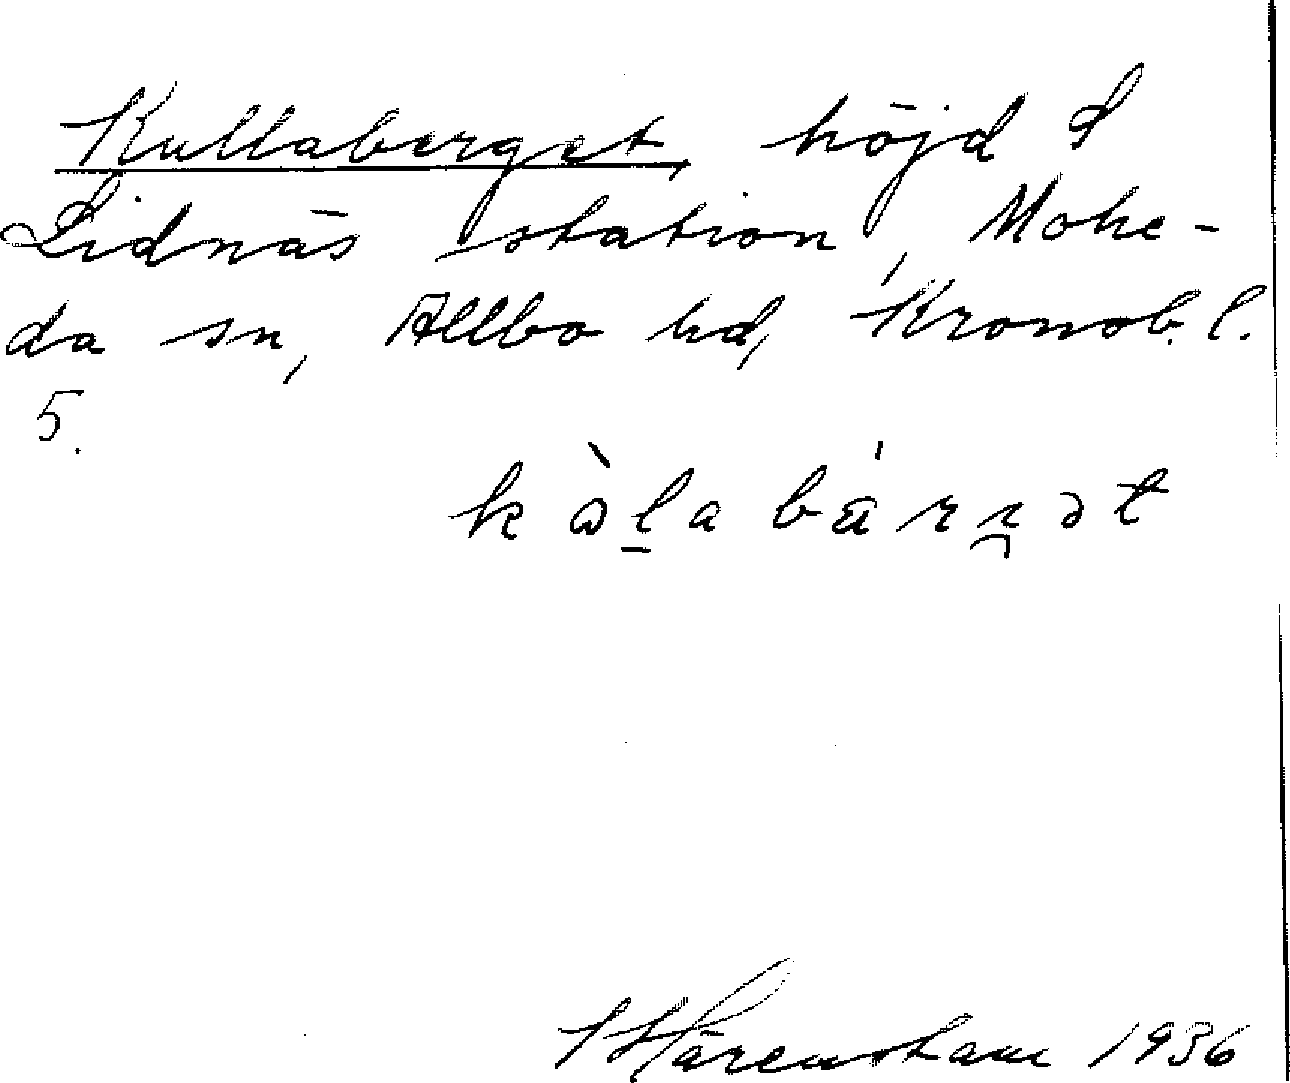 Kullaberget, höjd S
Lidnäs station, Mohe-
da sn, Allbo hd, Kronob. l.
5.
kòl̠a bárrət
1936